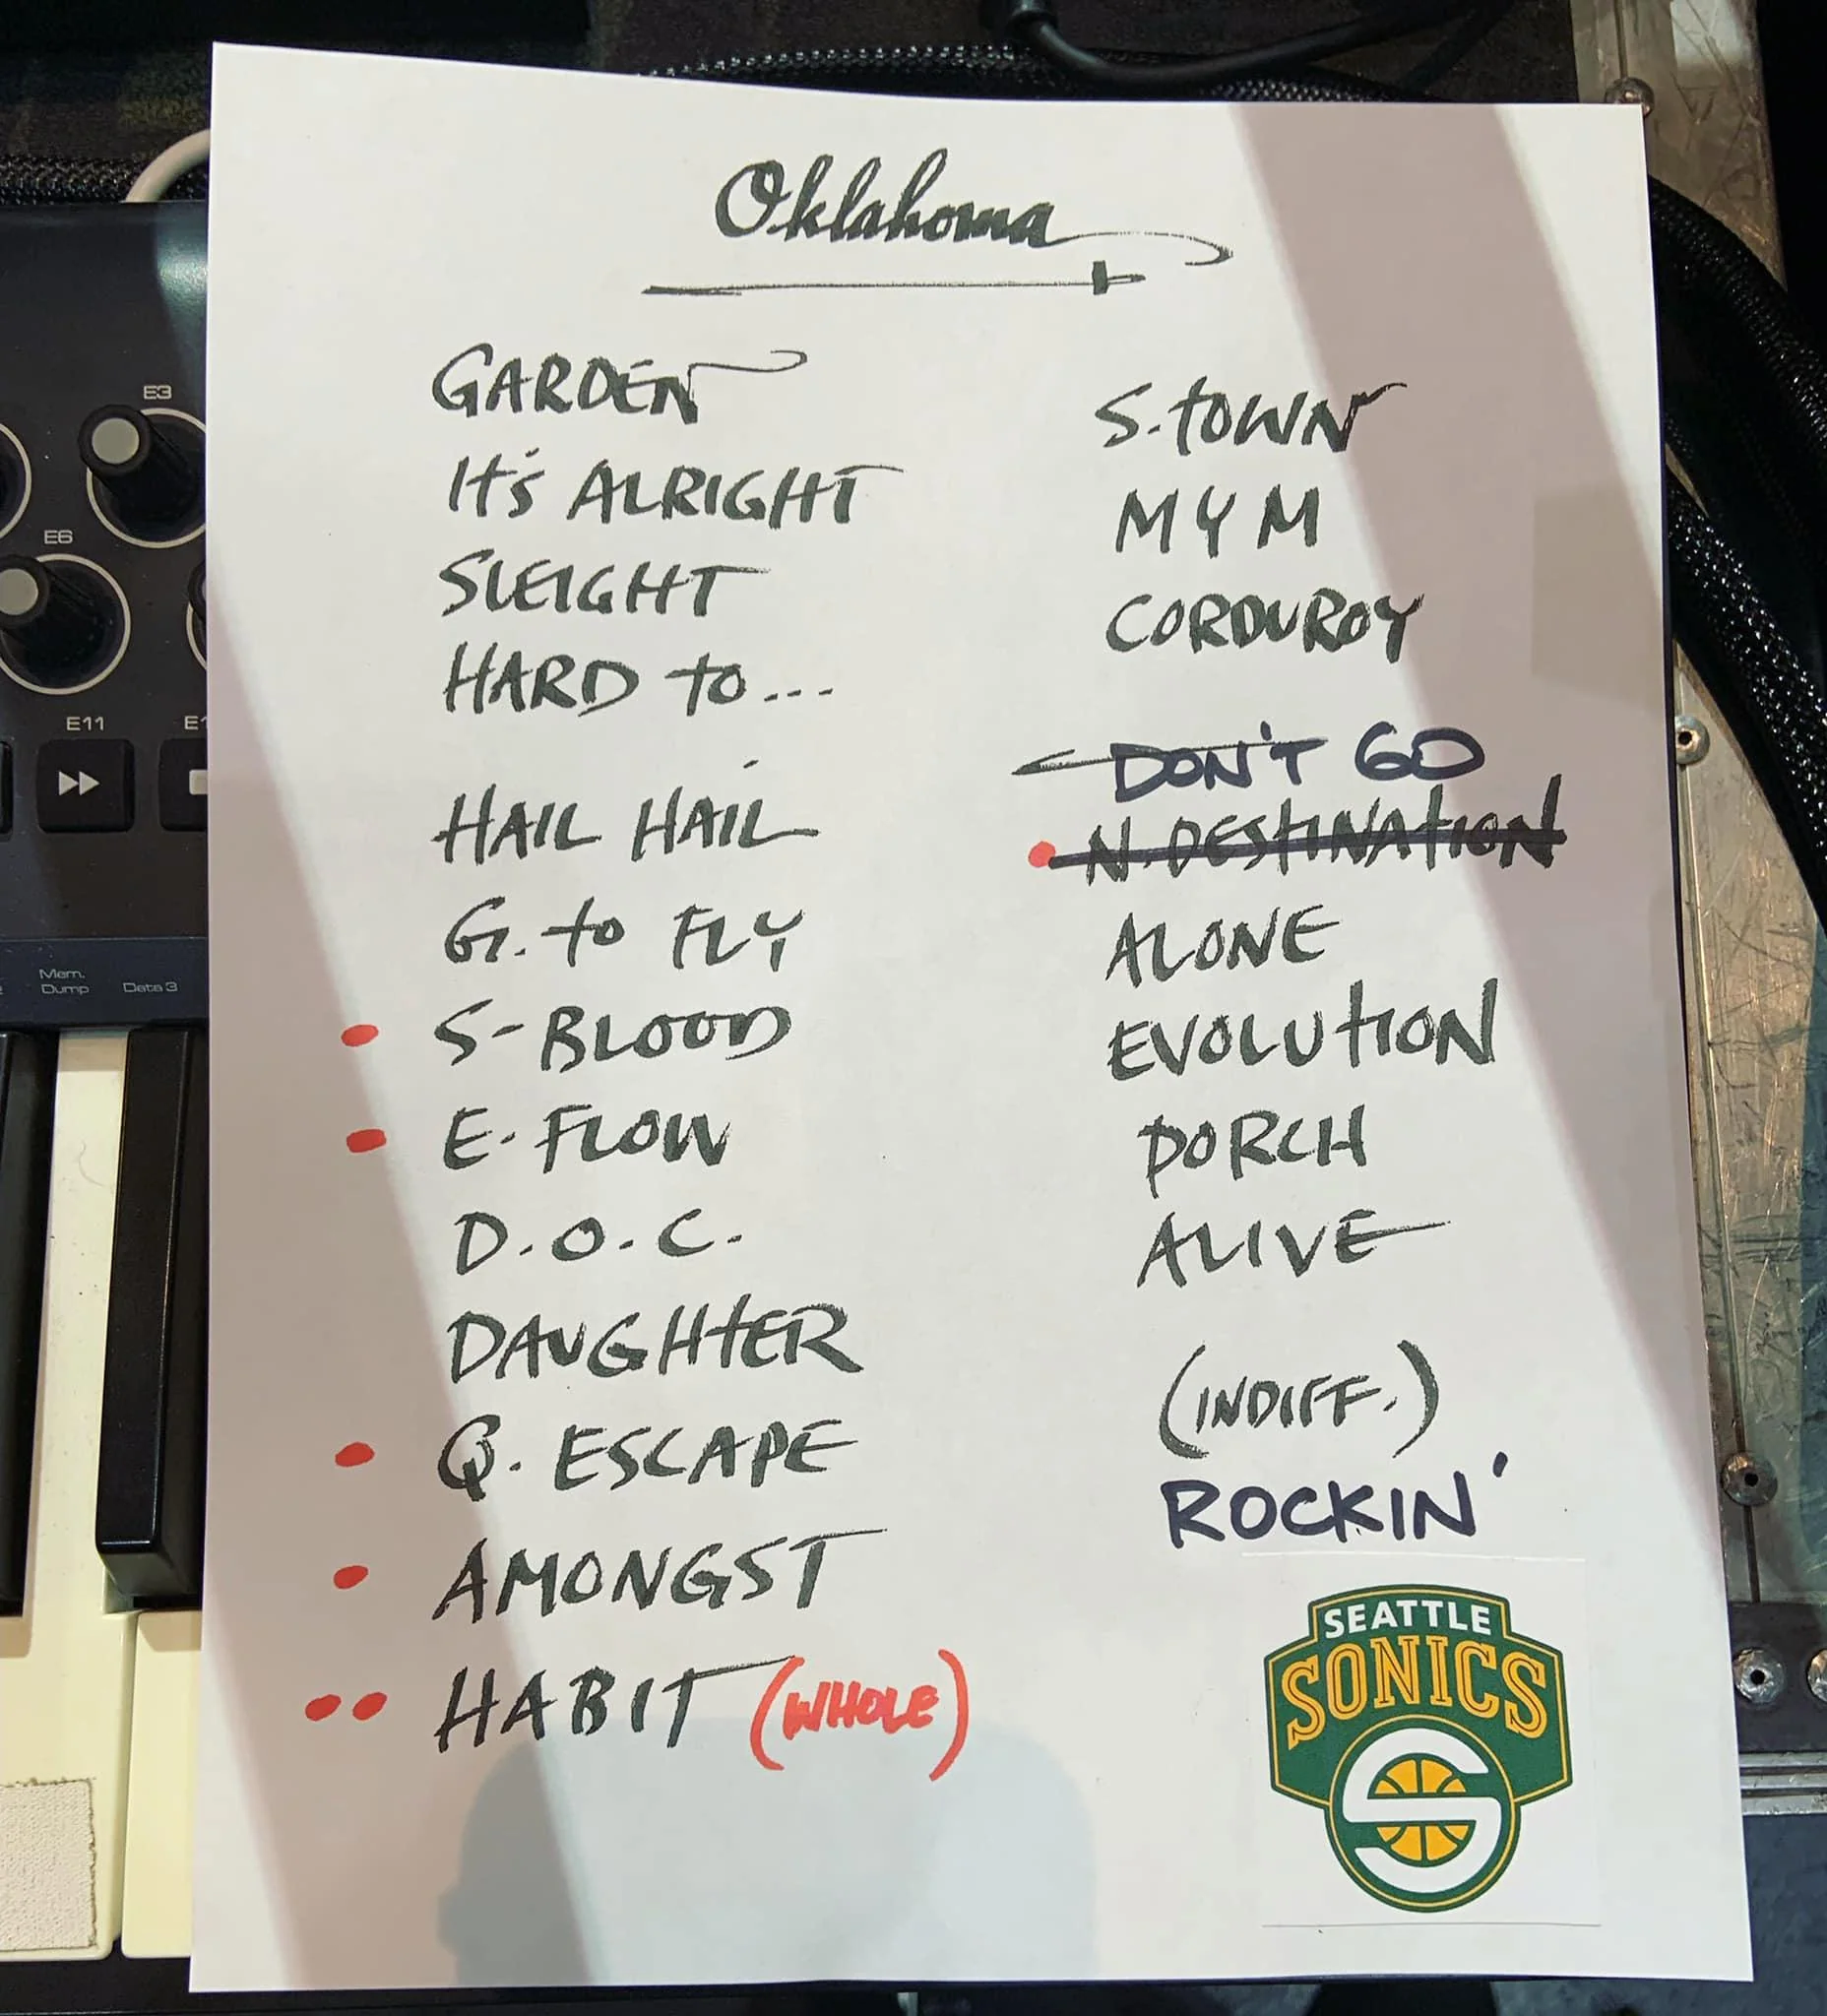 Oklahoma
GARDEN
It's ALRIGHT
SLEIGHT
HARD to...
HAIL HAIL
G. to FLY
S-BLOOD
E-FLOW
D.O.C.
DAUGHTER
Q. ESCAPE
AMONGST
HABIT (WHOLE)
S.TOWN
MYM
CORDUROY
DON'T GO
N.DESTINATION
ALONE
EVOLUTION
PORCH
ALIVE
(INDIFF.)
ROCKIN'
SEATTLE
SONICS
E3
E6
E11
Mem.
Dump
Data 3